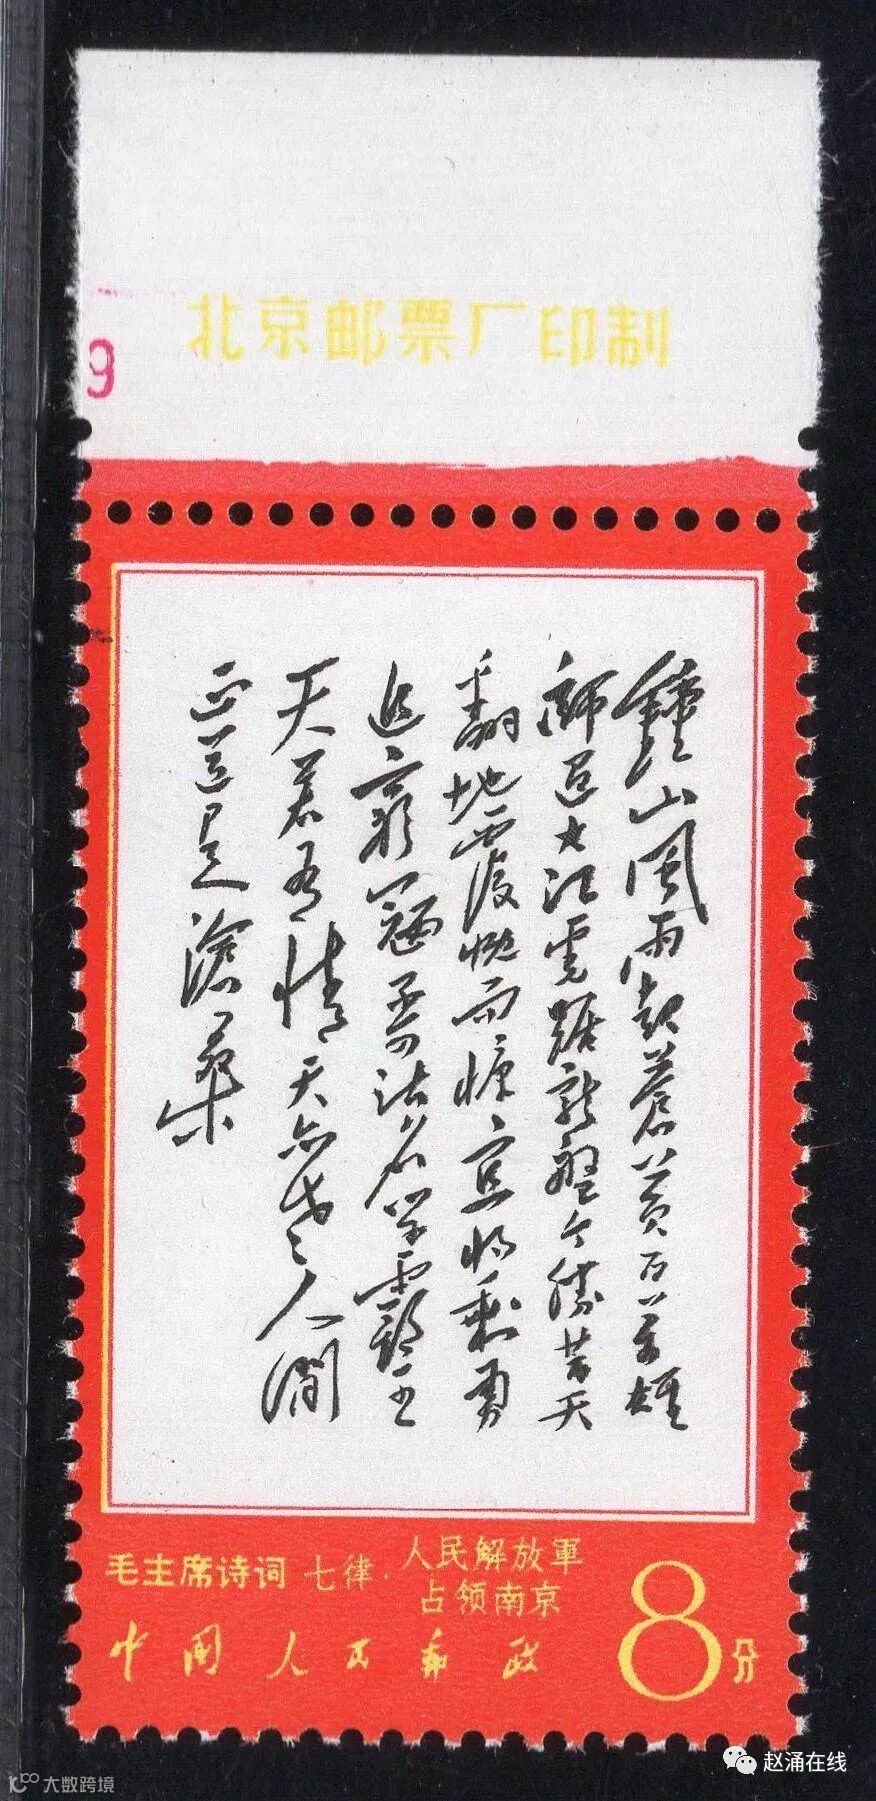 北京邮票厂印制
9
鍾山風雨起蒼黄百万雄
師过大江虎踞龙盘今勝昔天
翻地覆慨而慷宜将剩勇
追窮寇不可沽名学霸王
天若有情天亦老人间
正道是滄桑
毛主席诗词 七律·人民解放軍
占领南京
中国人民邮政
8分
赵涌在线
大数跨境